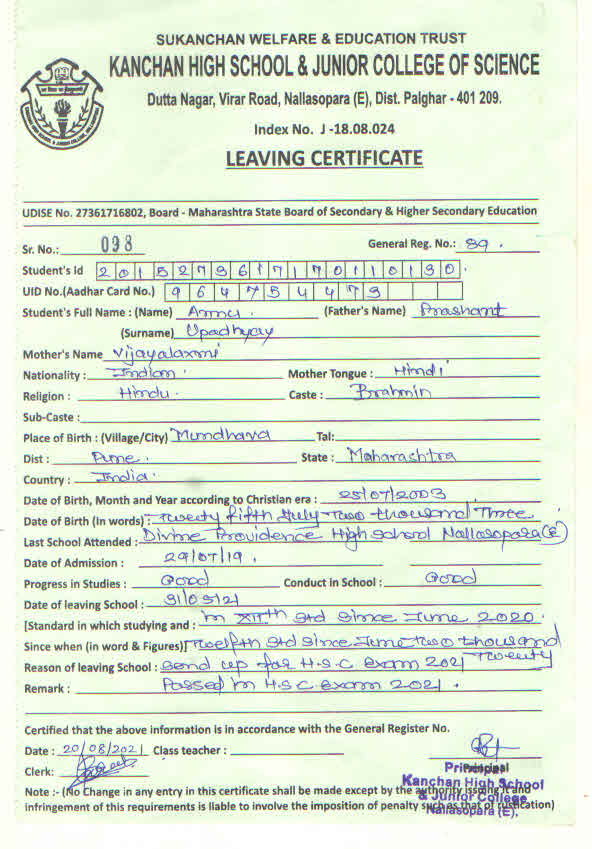 SUKANCHAN WELFARE & EDUCATION TRUST
KANCHAN HIGH SCHOOL & JUNIOR COLLEGE OF SCIENCE
Dutta Nagar, Virar Road, Nallasopara (E), Dist. Palghar - 401 209.
Index No. J -18.08.024
LEAVING CERTIFICATE
UDISE No. 27361716802, Board - Maharashtra State Board of Secondary & Higher Secondary Education
Sr. No.: 098 General Reg. No.: 89.
Student's Id 2015273617170110130.
UID No.(Aadhar Card No.) 964754473
Student's Full Name : (Name) Annu. (Father's Name) Prashant
(Surname) Upadhyay
Mother's Name Vijayalaxmi
Nationality : Indian. Mother Tongue : Hindi
Religion : Hindu. Caste : Brahmin
Sub-Caste :
Place of Birth : (Village/City) Mundhava Tal:
Dist : Pune. State : Maharashtra
Country : India.
Date of Birth, Month and Year according to Christian era : 25/07/2003
Date of Birth (In words) : Twenty fifth July Two thousand Three
Last School Attended : Divine Providence High School Nallasopara (E)
Date of Admission : 29/07/19.
Progress in Studies : Good Conduct in School : Good
Date of leaving School : 31/03/21
[Standard in which studying and : in XIIth std since June 2020.
Since when (in word & Figures)] Twelfth std since June two thousand Twenty
Reason of leaving School : Send up for H.S.C exam 2021
Remark : Passed in H.S.C. exam 2021.
Certified that the above information is in accordance with the General Register No.
Date : 20/08/2021 Class teacher :
Clerk:
Principal
Principal
Kanchan High School
& Junior College
Nallasopara (E).
Note :- (No Change in any entry in this certificate shall be made except by the authority issuing it and
infringement of this requirements is liable to involve the imposition of penalty such as that of rustication)